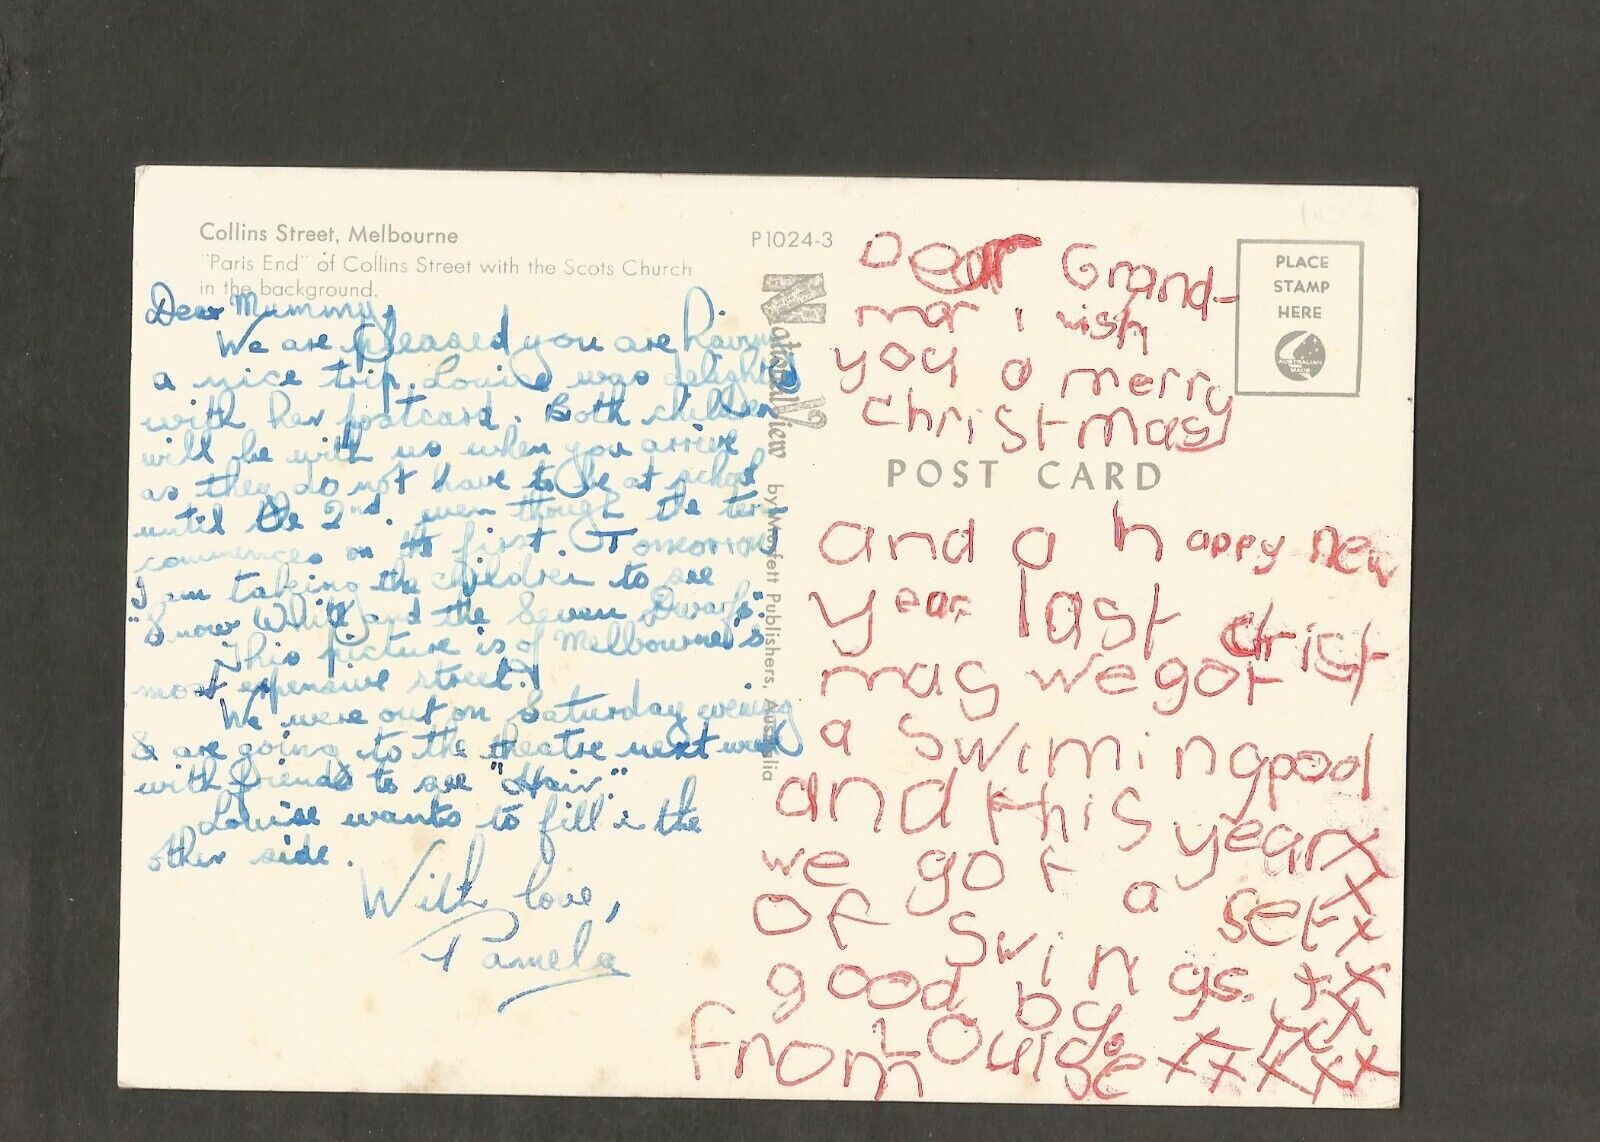 Collins Street, Melbourne
"Paris End" of Collins Street with the Scots Church
in the background.
P1024-3
Dear Mummy,
We are pleased you are having
a nice trip. Louise was delighted
with her postcard. Both children
will be with us when you arrive
as they do not have to be at school
until the 2nd. even though the term
commences on the first. Tomorrow
I am taking the children to see
"Snow White and the Seven Dwarfs."
This picture is of Melbourne's
most expensive street.
We were out on Saturday evening
& are going to the theatre next week
with friends to see "Hair".
Louise wants to fill in the
other side.
With love,
Pamela
National View by Murfett Publishers, Australia
PLACE
STAMP
HERE
AUSTRALIAN
MADE
POST CARD
Dear Grand-
mar i wish
you a merry
christmas
and a happy new
year last christ
mas we got
a swimingpool
and this year x
we got a set x
of swings. xx
good by
from Louise xxxxx